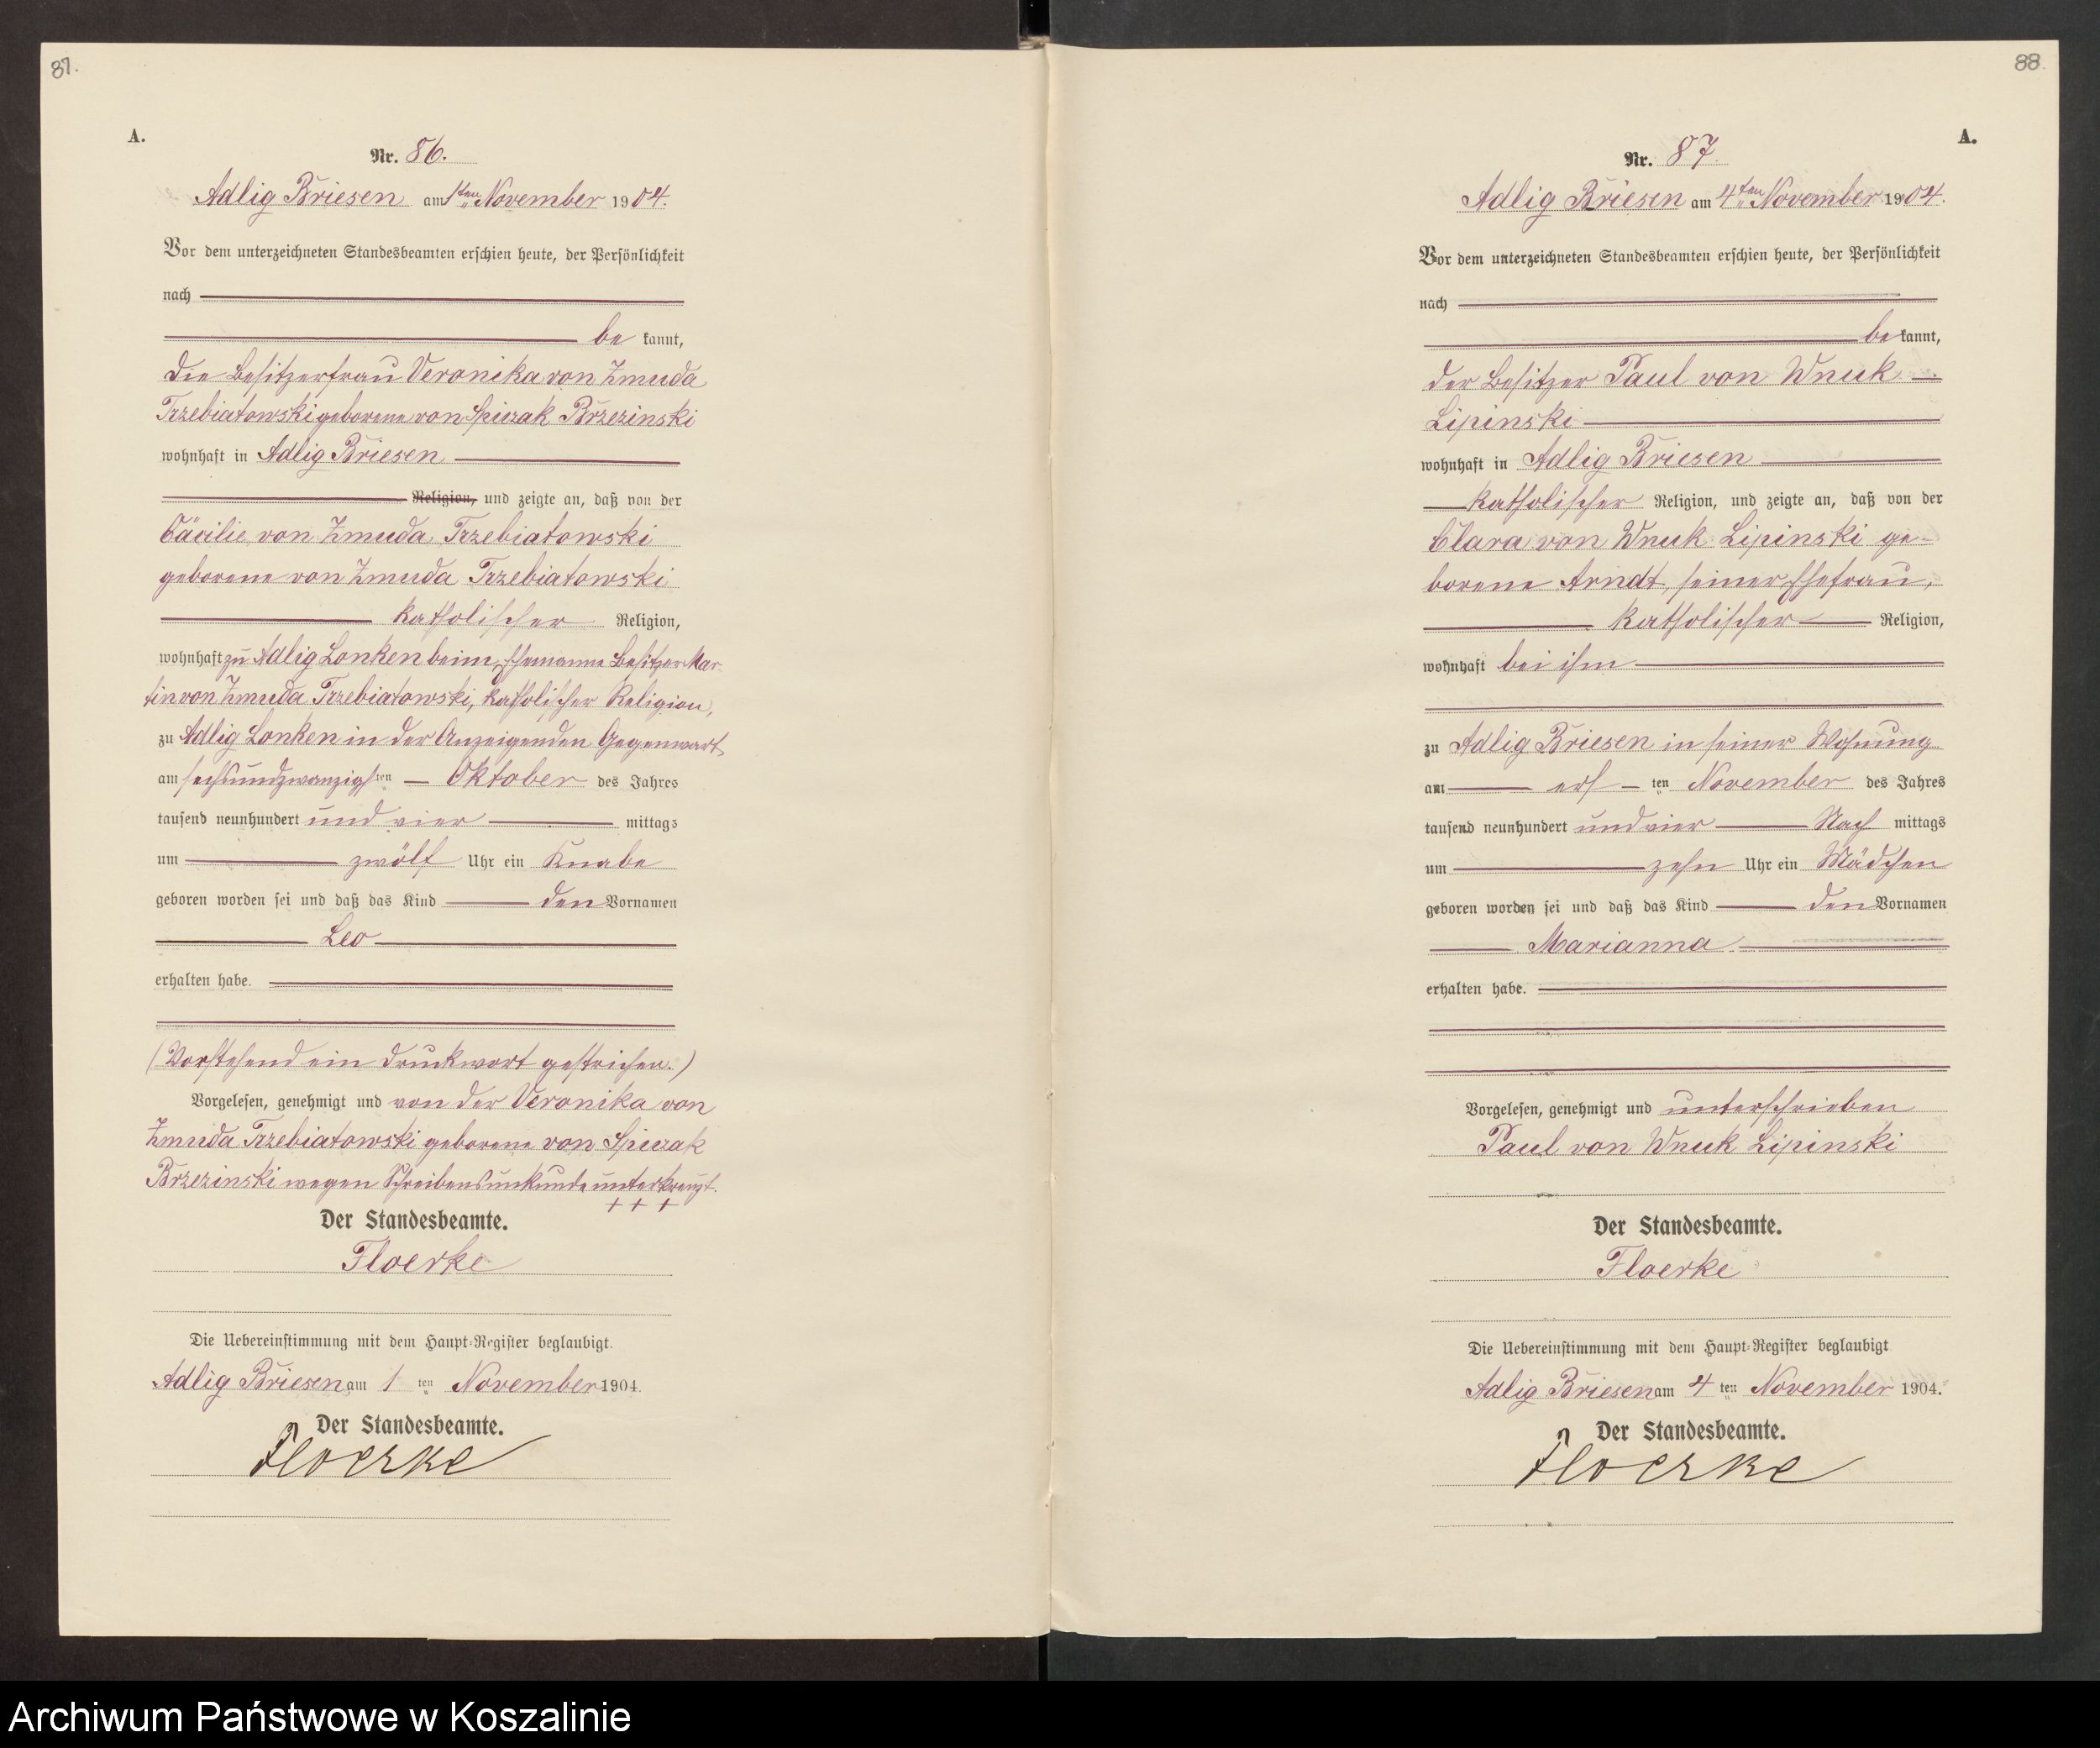 87.
A.
Nr. 86.
Adlig Briesen am 1ten November 1904.
Vor dem unterzeichneten Standesbeamten erschien heute, der Persönlichkeit
nach
be kannt,
die Besitzerfrau Veronika von Zmuda
Trzebiatowski geborene von Spiczak Brzezinski
wohnhaft in Adlig Briesen
Religion, und zeigte an, daß von der
Cäcilie von Zmuda Trzebiatowski
geborene von Zmuda Trzebiatowski
katholischer Religion,
wohnhaft zu Adlig Lonken beim Ehemanne Besitzer Mar-
tin von Zmuda Trzebiatowski, katholischer Religion,
zu Adlig Lonken in der Anzeigenden Gegenwart
am sechsundzwanzigsten Oktober des Jahres
tausend neunhundert und vier mittags
um zwölf Uhr ein Knabe
geboren worden sei und daß das Kind den Vornamen
Leo
erhalten habe.
(Vorstehend ein Druckwort gestrichen.)
Vorgelesen, genehmigt und von der Veronika von
Zmuda Trzebiatowski geborene von Spiczak
Brzezinski wegen Schreibensunkunde unterkreuzt.
+ + +
Der Standesbeamte.
Floerke
Die Uebereinstimmung mit dem Haupt-Register beglaubigt.
Adlig Briesen am 1 ten November 1904.
Der Standesbeamte.
Floerke
88.
A.
Nr. 87.
Adlig Briesen am 4ten November 1904.
Vor dem unterzeichneten Standesbeamten erschien heute, der Persönlichkeit
nach
be kannt,
der Besitzer Paul von Wnuk
Lipinski
wohnhaft in Adlig Briesen
katholischer Religion, und zeigte an, daß von der
Clara von Wnuk Lipinski ge-
borene Arndt, seiner Ehefrau,
katholischer Religion,
wohnhaft bei ihm
zu Adlig Briesen in seiner Wohnung
am ers ten November des Jahres
tausend neunhundert und vier Nach mittags
um zehn Uhr ein Mädchen
geboren worden sei und daß das Kind den Vornamen
Marianna
erhalten habe.
Vorgelesen, genehmigt und unterschrieben
Paul von Wnuk Lipinski
Der Standesbeamte.
Floerke
Die Uebereinstimmung mit dem Haupt-Register beglaubigt
Adlig Briesen am 4 ten November 1904.
Der Standesbeamte.
Floerke
Archiwum Państwowe w Koszalinie